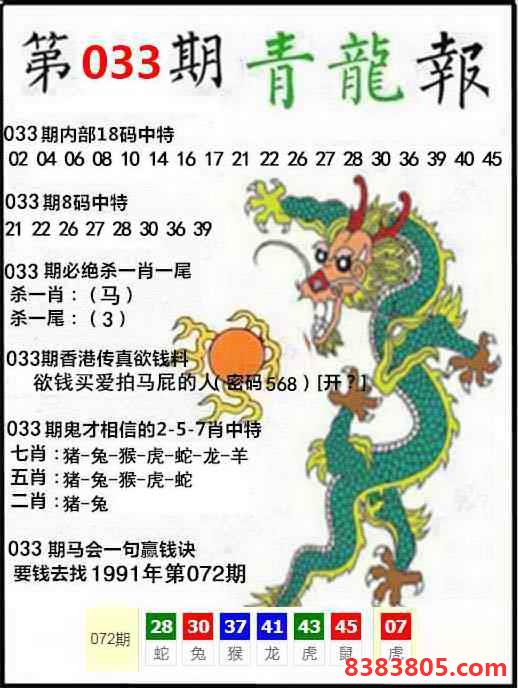 第033期青龍報
033期内部18码中特
02 04 06 08 10 14 16 17 21 22 26 27 28 30 36 39 40 45
033期8码中特
21 22 26 27 28 30 36 39
033期必绝杀一肖一尾
杀一肖：（马）
杀一尾：（3）
033期香港传真欲钱料
欲钱买爱拍马屁的人(密码568)[开?]
033期鬼才相信的2-5-7肖中特
七肖：猪-兔-猴-虎-蛇-龙-羊
五肖：猪-兔-猴-虎-蛇
二肖：猪-兔
033期马会一句赢钱诀
要钱去找1991年第072期
072期 28 30 37 41 43 45 07
蛇 兔 猴 龙 虎 鼠 虎
8383805.com